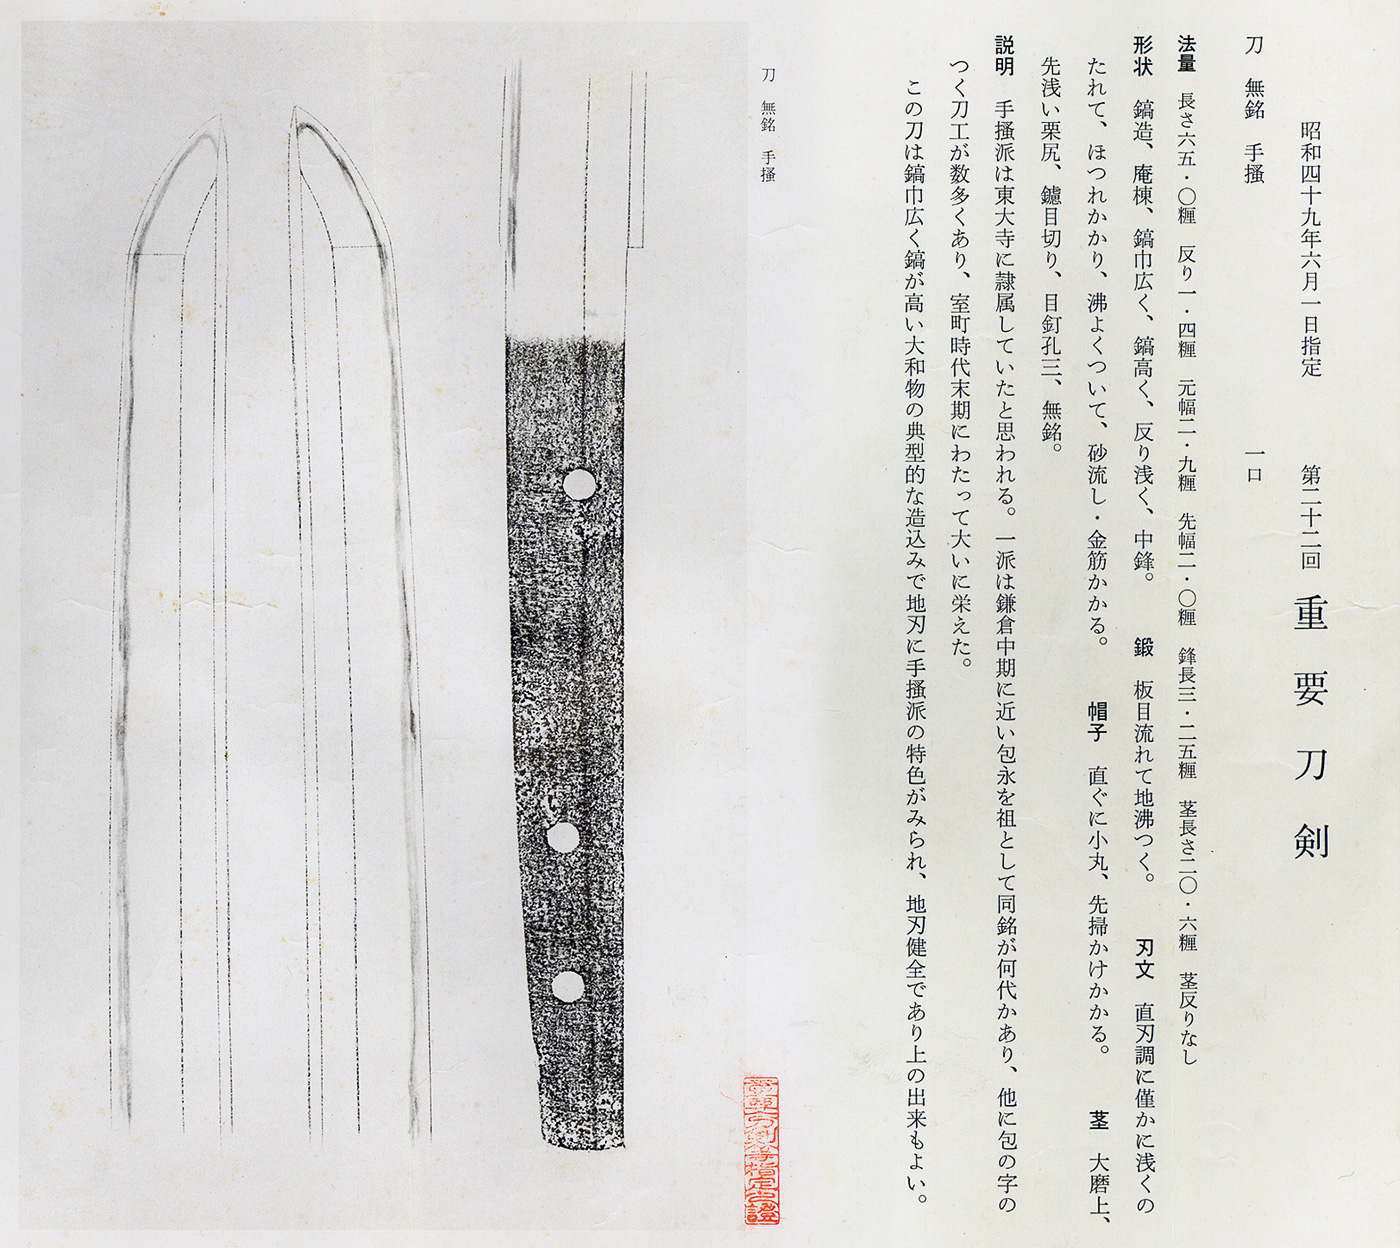 昭和四十九年六月一日指定　第二十二回　重要刀剣
刀　無銘　手掻　一口
法量　長さ六五・〇糎　反り一・四糎　元幅二・九糎　先幅二・〇糎　鋒長三・二五糎　茎長さ二〇・六糎　茎反りなし
形状　鎬造、庵棟、鎬巾広く、鎬高く、反り浅く、中鋒。　鍛　板目流れて地沸つく。　刃文　直刃調に僅かに浅くの
たれて、ほつれかかり、沸よくついて、砂流し・金筋かかる。　帽子　直ぐに小丸、先掃かけかかる。　茎　大磨上、
先浅い栗尻、鑢目切り、目釘孔三、無銘。
説明　手掻派は東大寺に隷属していたと思われる。一派は鎌倉中期に近い包永を祖として同銘が何代かあり、他に包の字の
つく刀工が数多くあり、室町時代末期にわたって大いに栄えた。
この刀は鎬巾広く鎬が高い大和物の典型的な造込みで地刃に手掻派の特色がみられ、地刃健全であり上の出来もよい。
刀　無銘　手掻
重要刀剣等指定之證